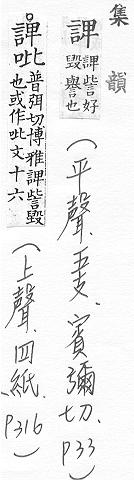 集韻
諀 諀訾好毁譽也
(平聲.五支.賓彌切.P33)
諀吡 普弭切博雅諀訾毁也或作吡文十六
(上聲.四紙.P316)